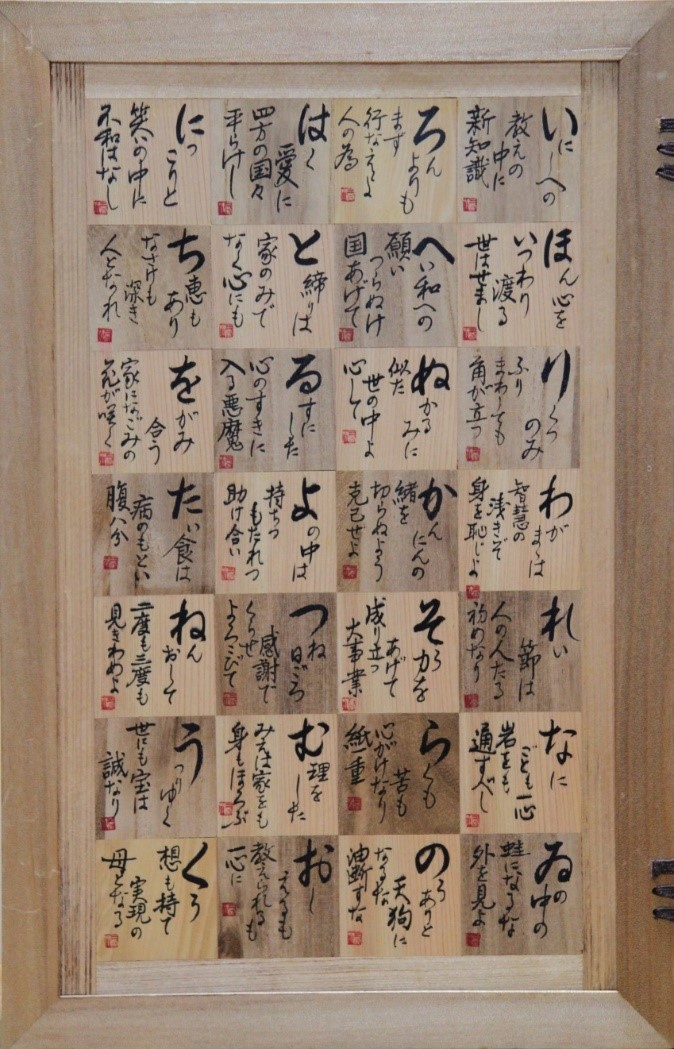 いにしへの
教えの
中に
新知識
ろんよりも
まず
行なえよ
人の為
はく愛に
四方の国々
平らけし
にっこりと
笑いの中に
不和はなし
ほん心を
いつわり渡る
世はせまし
へい和への
願い
つらぬけ
国あげて
と締りは
家のみで
なく心にも
ち恵もあり
なさけも
深き
人となれ
りくつのみ
ふり
まわしても
角が立つ
ぬかるみに
似た
世の中よ
心して
るすにした
心のすきに
入る悪魔
をがみ合う
家になごみの
花が咲く
わがままは
智慧の
浅きぞ
身を恥じよ
かんにんの
緒を
切らぬよう
克己せよ
よの中は
持ちつ
もたれつ
助け合い
たい食は
病のもとい
腹八分
れい節は
人の人たる
初めなり
そう力を
あげて
成り立つ
大事業
つね日ごろ
感謝で
くらせ
よろこびて
ねんおして
二度も三度も
見きわめよ
なにごとも一心
岩をも
通すべし
らくも苦も
心がけなり
紙一重
む理をした
みえは家をも
身もほろぶ
うつりゆく
世にも宝は
誠なり
ゐの中の
蛙になるな
外を見よ
のうありと
天狗に
なるな
油断すな
おしえるも
教えられるも
一心に
くろう
想も持て
実現の
母となる